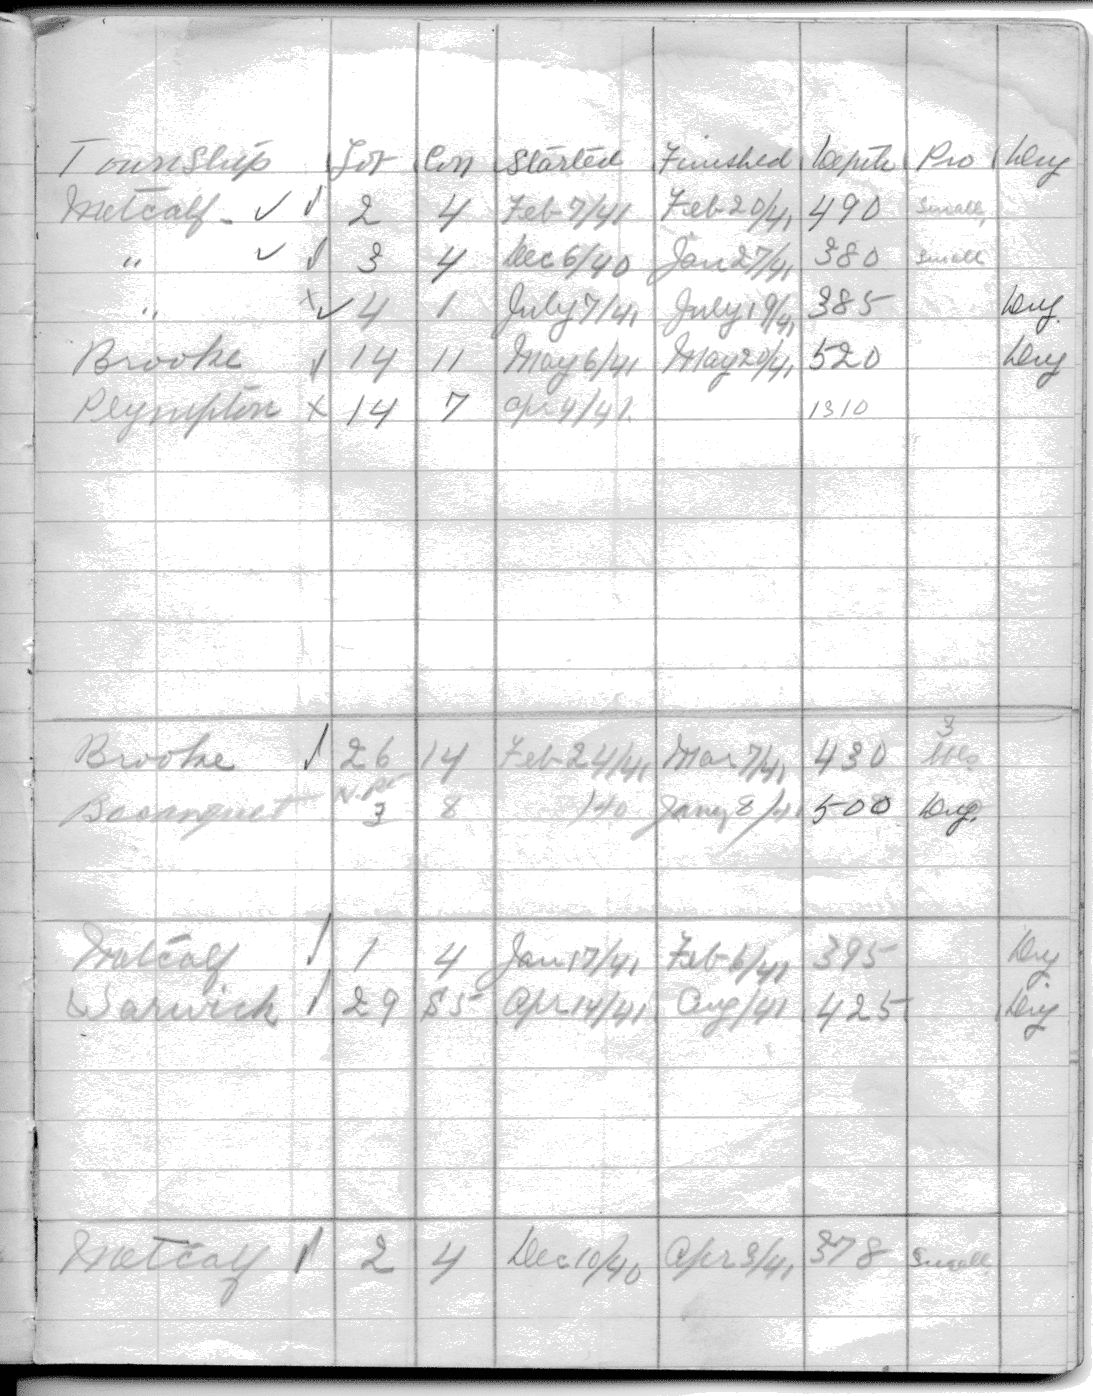 Township Lot Con Started Finished Depth Pro Dry
Metcalf - ✓ ✓ 2 4 Feb 7/41 Feb 20/41 490 Small
" ✓ ✓ 3 4 Dec 6/40 Jan 27/41 380 Small
" x ✓ 4 1 July 7/41 July 19/41 385 Dry.
Brooke ✓ 14 11 May 6/41 May 20/41 520 Dry
Plympton x 14 7 Apr 4/41. 1310
3
Brooke ✓ 26 14 Feb 24/41 Mar 7/41 430 Bbls
Bosanquet 3 8 /40 Jany 8/41 500 Dry.
Metcalf ✓ 1 4 Jan 17/41 Feb 6/41 395 Dry
Warwick ✓ 29 S5 Apr 14/41 Aug/41 425 Dry
Metcalf ✓ 2 4 Dec 10/40 Apr 3/41 378 Small